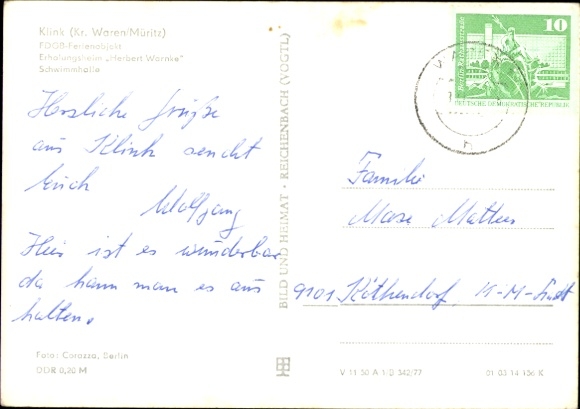 Klink (Kr. Waren/Müritz)
FDGB-Ferienobjekt
Erholungsheim „Herbert Warnke"
Schwimmhalle
Herzliche Grüße
aus Klink sendet
Euch
Wolfgang
Hier ist es wunderbar
da kann man es aus
halten.
Foto: Corazza, Berlin
DDR 0,20 M
BILD UND HEIMAT · REICHENBACH (VOGTL)
10
DEUTSCHE DEMOKRATISCHE REPUBLIK
Familie
9101 Köthensdorf, K-M-Stadt
V 11 50 A 1/B 342/77
01 03 14 136 K